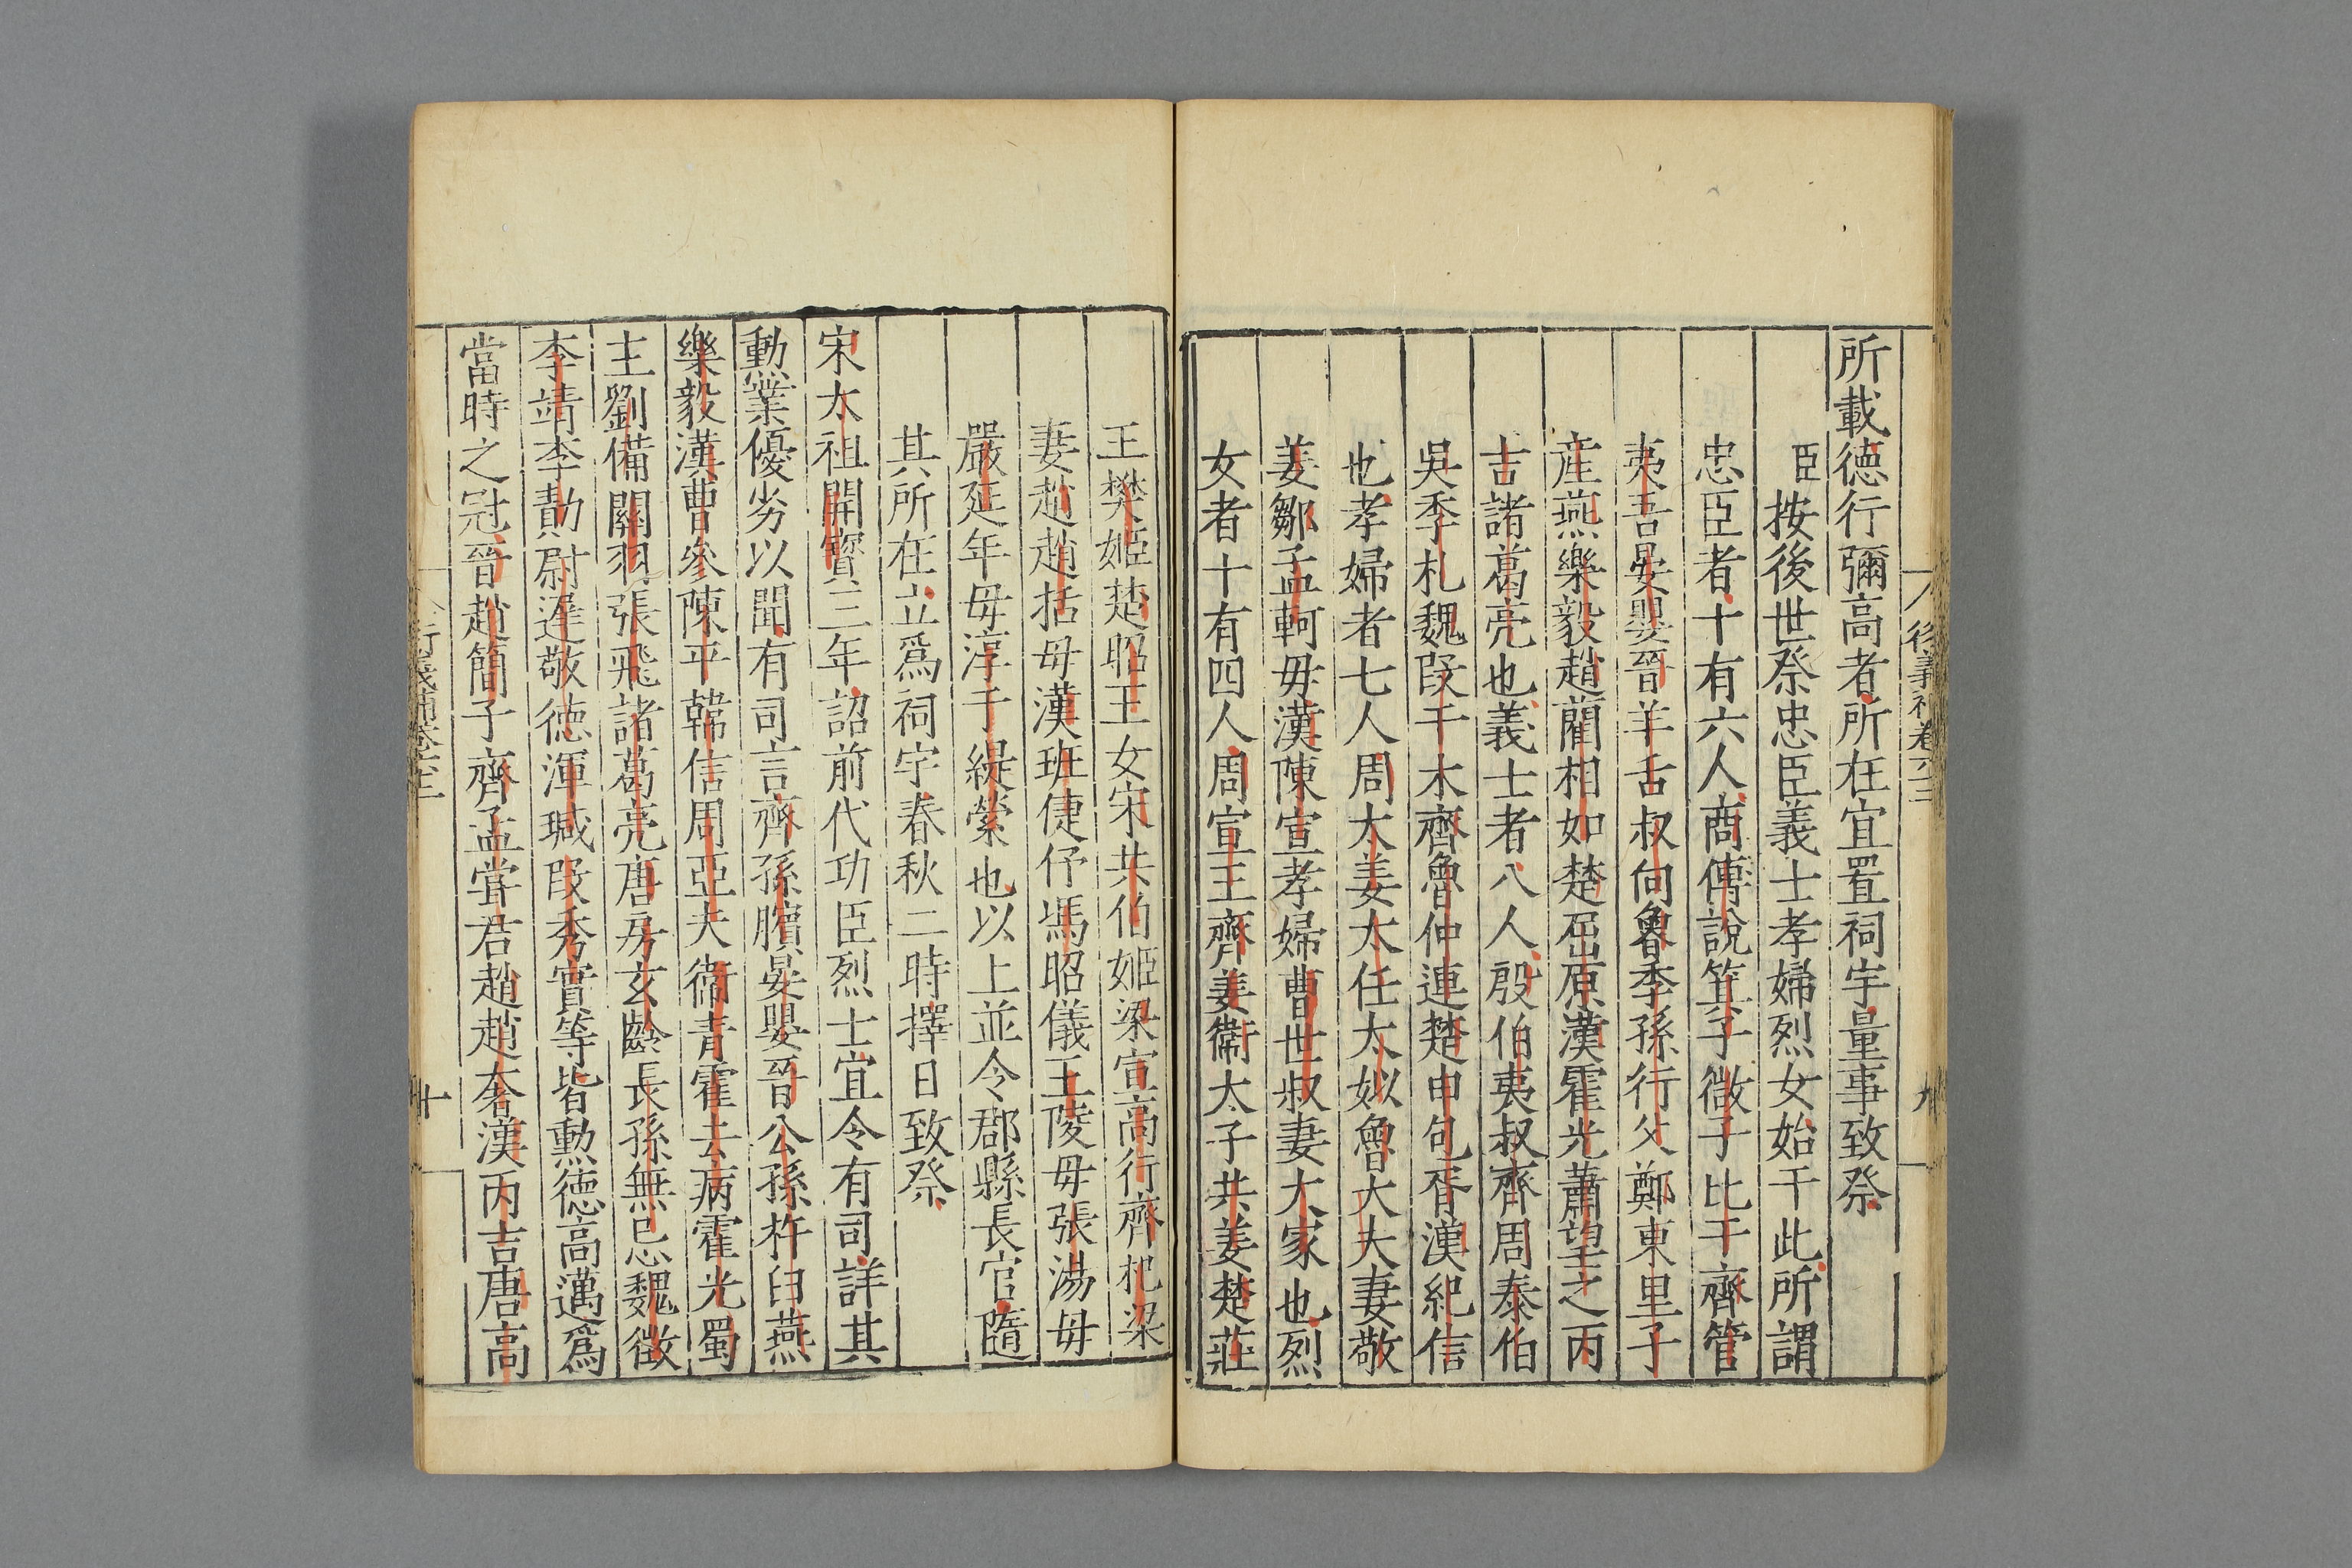 所載德行彌高者所在宜置祠宇量事致祭
臣按後世祭忠臣義士孝婦烈女始于此所謂
忠臣者十有六人商傅說箕子微子比干齊管
夷吾晏嬰晉羊舌叔向魯季孫行父鄭東里子
產燕樂毅趙藺相如楚屈原漢霍光蕭望之丙
吉諸葛亮也義士者八人殷伯夷叔齊周泰伯
吳季札魏段干木齊魯仲連楚申包胥漢紀信
也孝婦者七人周太姜太任太姒魯大夫妻敬
姜鄒孟軻母漢陳宣孝婦曹世叔妻大家也烈
女者十有四人周宣王齊姜衛太子共姜楚莊
王樊姬楚昭王女宋共伯姬梁宣高行齊杞梁
妻趙趙括母漢班倢伃馮昭儀王陵母張湯母
嚴延年母淳于緹縈也以上並令郡縣長官隨
其所在立爲祠宇春秋二時擇日致祭
宋太祖開寳三年詔前代功臣烈士宜令有司詳其
勳業優劣以聞有司言齊孫臏晏嬰晉公孫杵臼燕
樂毅漢曹參陳平韓信周亞夫衛青霍去病霍光蜀
主劉備關羽張飛諸葛亮唐房玄齡長孫無忌魏徵
李靖李勣尉遲敬德渾瑊段秀實等皆勳德高邁爲
當時之冠晉趙簡子齊孟甞君趙趙奢漢丙吉唐高
九
十